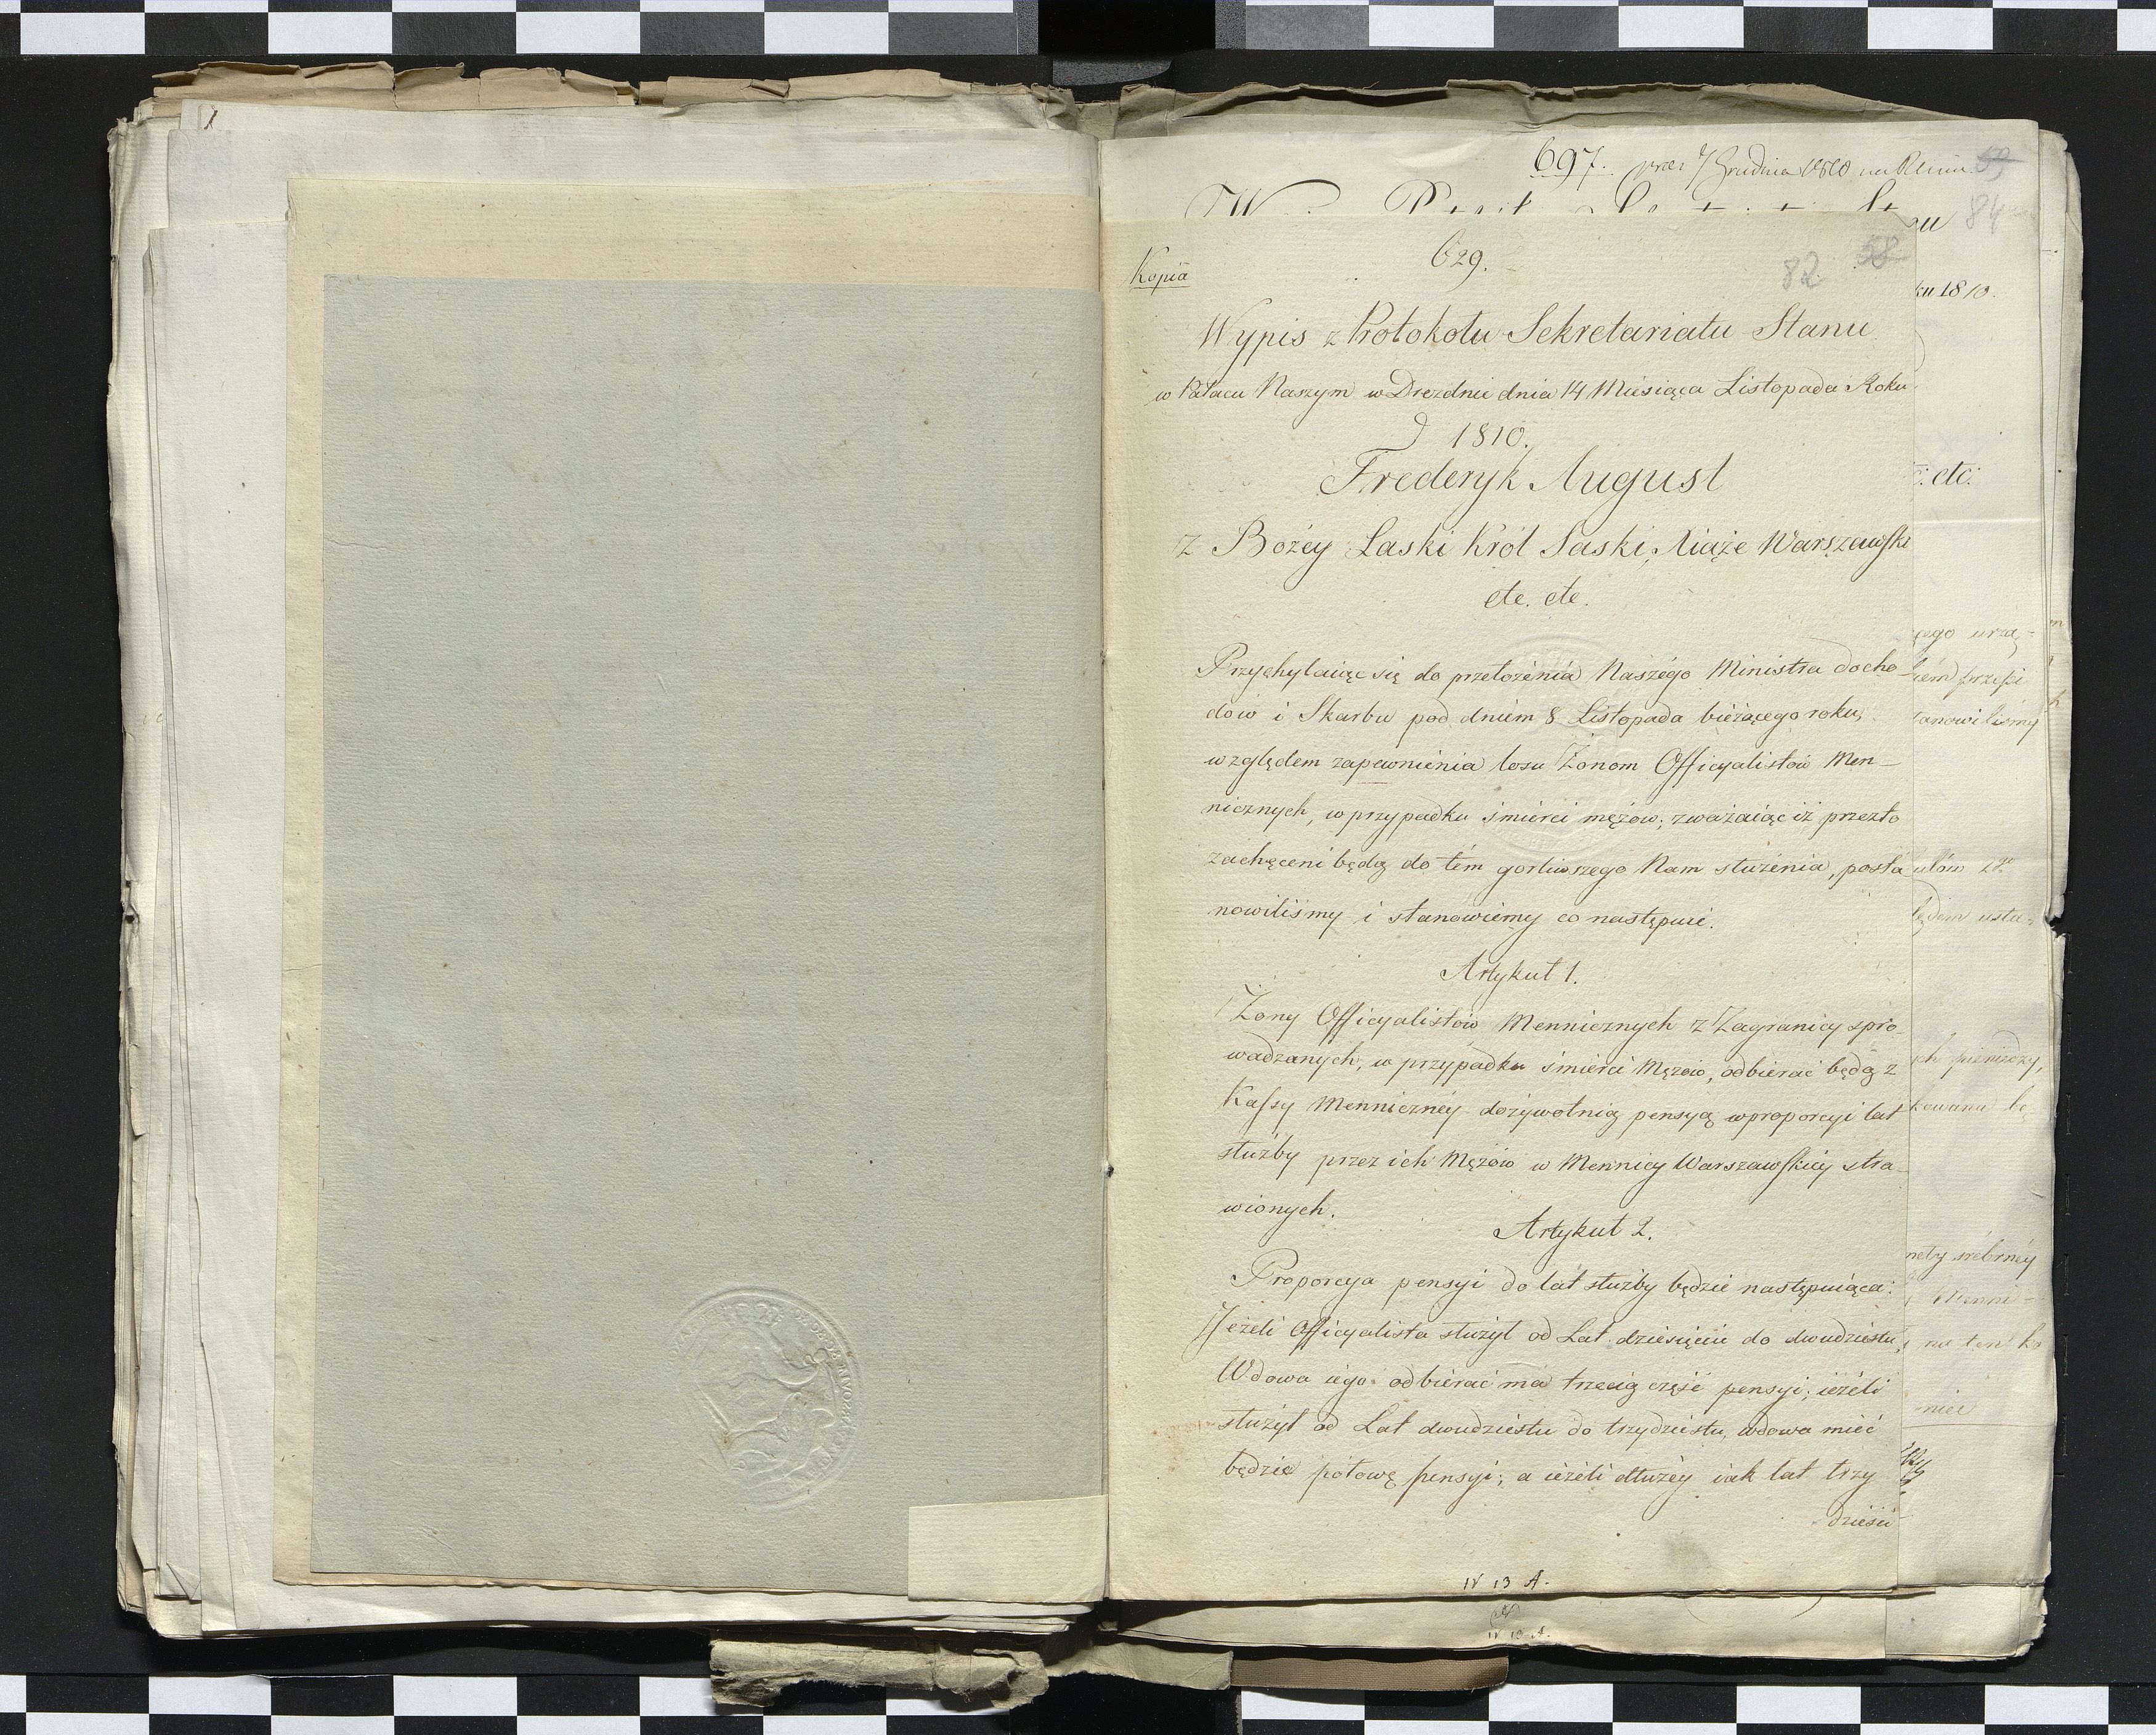 697. 7 Grudnia 1810
84
ku 1810.
etc:
Kopia
629.
82 58
Wypis z Protokołu Sekretariatu Stanu
w Pałacu Naszym w Dreznie dnia 14 Miesiąca Listopada Roku
1810.
Frederyk August
z Bożey Łaski Król Saski, Xiąże Warszawski
etc. etc.
Przychylaiąc się do przełożenia Naszégo Ministra docho
dów i Skarbu pod dniem 8 Listopada bieżącego roku,
względem zapewnienia losu Żonom Officyalistów Men-
nicznych, w przypadku śmierci mężów; zważaiąc iż przezto
zachęceni będą do tém gorliwszego Nam służenia, posta
nowiliśmy i stanowiemy co następuie.
Artykuł 1.
Żony Officyalistów Mennicznych z Zagranicy spro-
wadzanych, w przypadku śmierci Mężów, odbierać będą z
Kassy Menniczney dożywotnią pensyą w proporcyi lat
służby przez ich Mężów w Mennicy Warszawskiey stra-
wionych.
Artykuł 2.
Proporcya pensyi do lat służby będzie następuiąca:
Jeżeli Officyalista służył od Lat dziesięciu do dwudziestu,
Wdowa iego odbierać ma trzecią część pensyi; ieżeli
służył od Lat dwudziestu do trzydziestu, wdowa mieć
będzie połowę pensyi; a ieżeli dłużéy iak lat trzy
dzieści
IV 13 A.
IV 13 A.